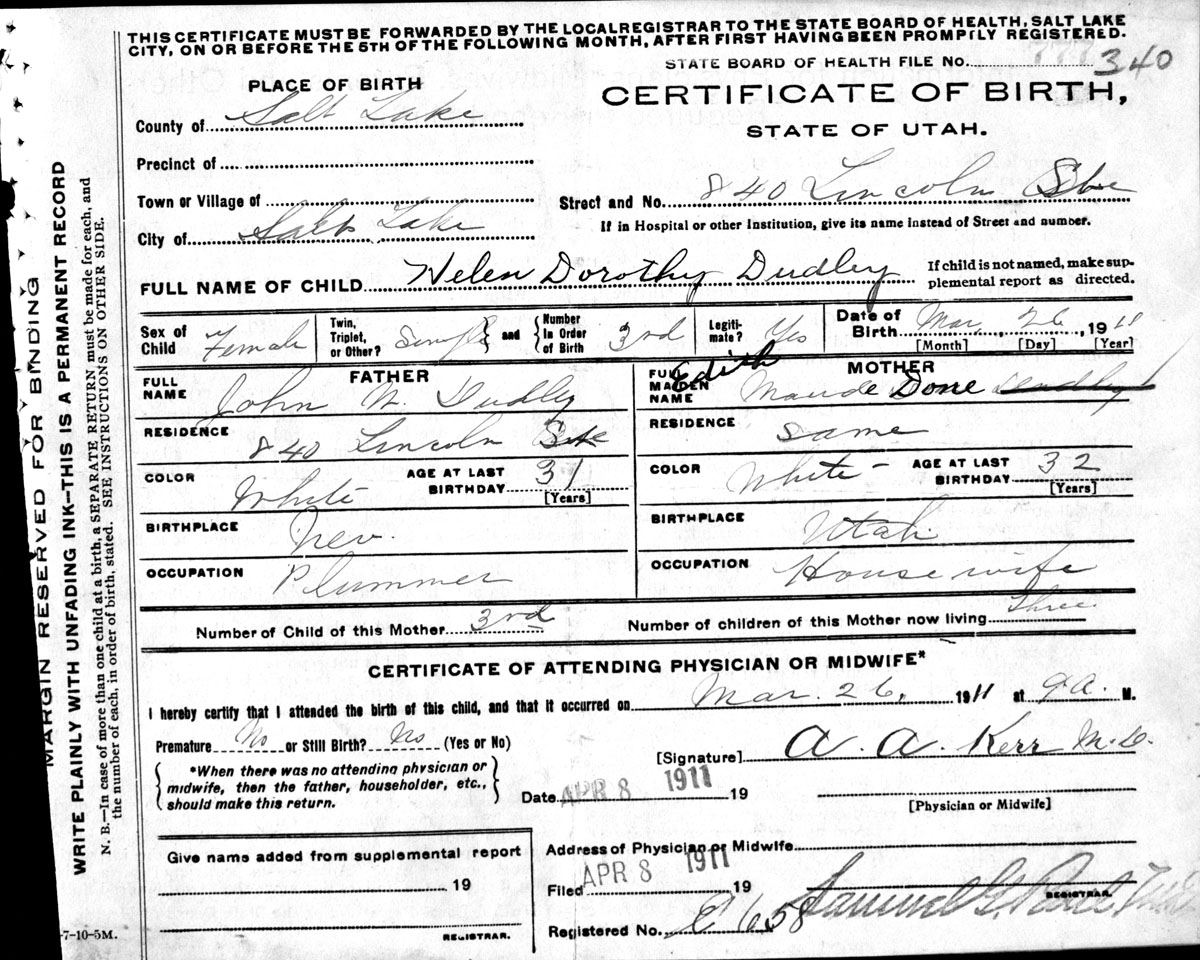 THIS CERTIFICATE MUST BE FORWARDED BY THE LOCAL REGISTRAR TO THE STATE BOARD OF HEALTH, SALT LAKE
CITY, ON OR BEFORE THE 5TH OF THE FOLLOWING MONTH, AFTER FIRST HAVING BEEN PROMPTLY REGISTERED.
STATE BOARD OF HEALTH FILE NO. 340
PLACE OF BIRTH
CERTIFICATE OF BIRTH,
STATE OF UTAH.
County of Salt Lake
Precinct of
Town or Village of
Street and No. 840 Lincoln
City of Salt Lake
If in Hospital or other Institution, give its name instead of Street and number.
FULL NAME OF CHILD Helen Dorothy Dudley
If child is not named, make sup-
plemental report as directed.
Sex of Child Female
Twin, Triplet, or Other? Single and Number In Order of Birth 3rd
Legiti-mate? Yes
Date of Birth Mar 26, 1911
[Month] [Day] [Year]
FATHER
FULL NAME John W. Dudley
RESIDENCE 840 Lincoln
COLOR White AGE AT LAST BIRTHDAY 31
[Years]
BIRTHPLACE Nev.
OCCUPATION Plummer
MOTHER
FULL MAIDEN NAME Edith Maude Done Dudley
RESIDENCE same
COLOR White AGE AT LAST BIRTHDAY 32
[Years]
BIRTHPLACE Utah
OCCUPATION Housewife
Number of Child of this Mother 3rd
Number of children of this Mother now living Three
CERTIFICATE OF ATTENDING PHYSICIAN OR MIDWIFE*
I hereby certify that I attended the birth of this child, and that it occurred on Mar. 26, 1911 at 9 a. M.
Premature No or Still Birth? No (Yes or No)
[Signature] A. A. Kerr M.D.
*When there was no attending physician or
midwife, then the father, householder, etc.,
should make this return.
Date APR 8 1911 19
[Physician or Midwife]
Give name added from supplemental report
19
REGISTRAR.
Address of Physician or Midwife
Filed APR 8 1911 19
REGISTRAR.
Registered No. E 658
7-10-5M.
MARGIN RESERVED FOR BINDING
WRITE PLAINLY WITH UNFADING INK—THIS IS A PERMANENT RECORD
N. B.—In case of more than one child at a birth, a SEPARATE RETURN must be made for each, and
the number of each, in order of birth, stated. SEE INSTRUCTIONS ON OTHER SIDE.